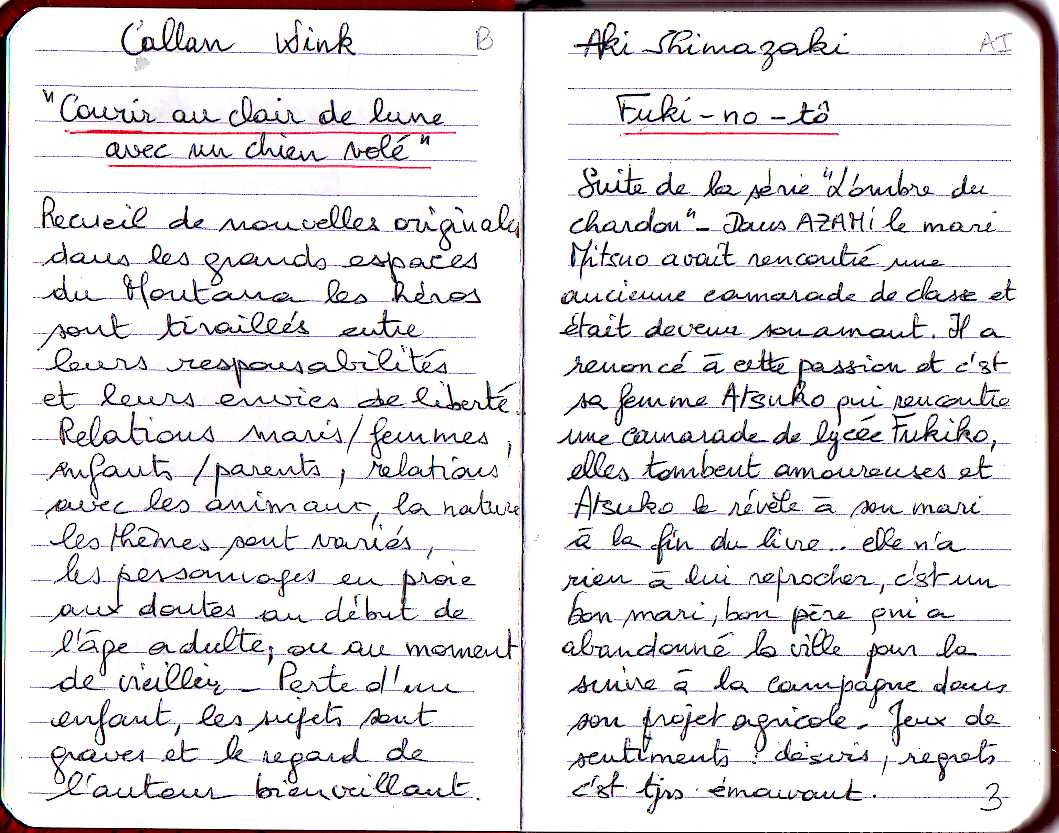 Callan Wink B
"Courir au clair de lune
avec un chien volé"
Recueil de nouvelles originales
dans les grands espaces
du Montana les héros
sont tiraillés entre
leurs responsabilités
et leurs envies de liberté.
Relations maris/femmes,
enfants/parents, relations
avec les animaux, la nature
les thèmes sont variés,
les personnages en proie
aux doutes au début de
l'âge adulte, ou au moment
de vieillir - Perte d'un
enfant, les sujets sont
graves et le regard de
l'auteur bienveillant.
Aki Shimazaki AI
Fuki-no-tô
Suite de la série "L'ombre du
chardon" - Dans AZAMI le mari
Mitsuo avait rencontré une
ancienne camarade de classe et
était devenu son amant. Il a
renoncé à cette passion et c'est
sa femme Atsuko qui rencontre
une camarade de lycée Fukiko,
elles tombent amoureuses et
Atsuko le révèle à son mari
à la fin du livre.. elle n'a
rien à lui reprocher, c'est un
bon mari, bon père qui a
abandonné la ville pour la
suivre à la campagne dans
son projet agricole - Jeux de
sentiments ? désirs, regrets
c'est tjrs émouvant.
3